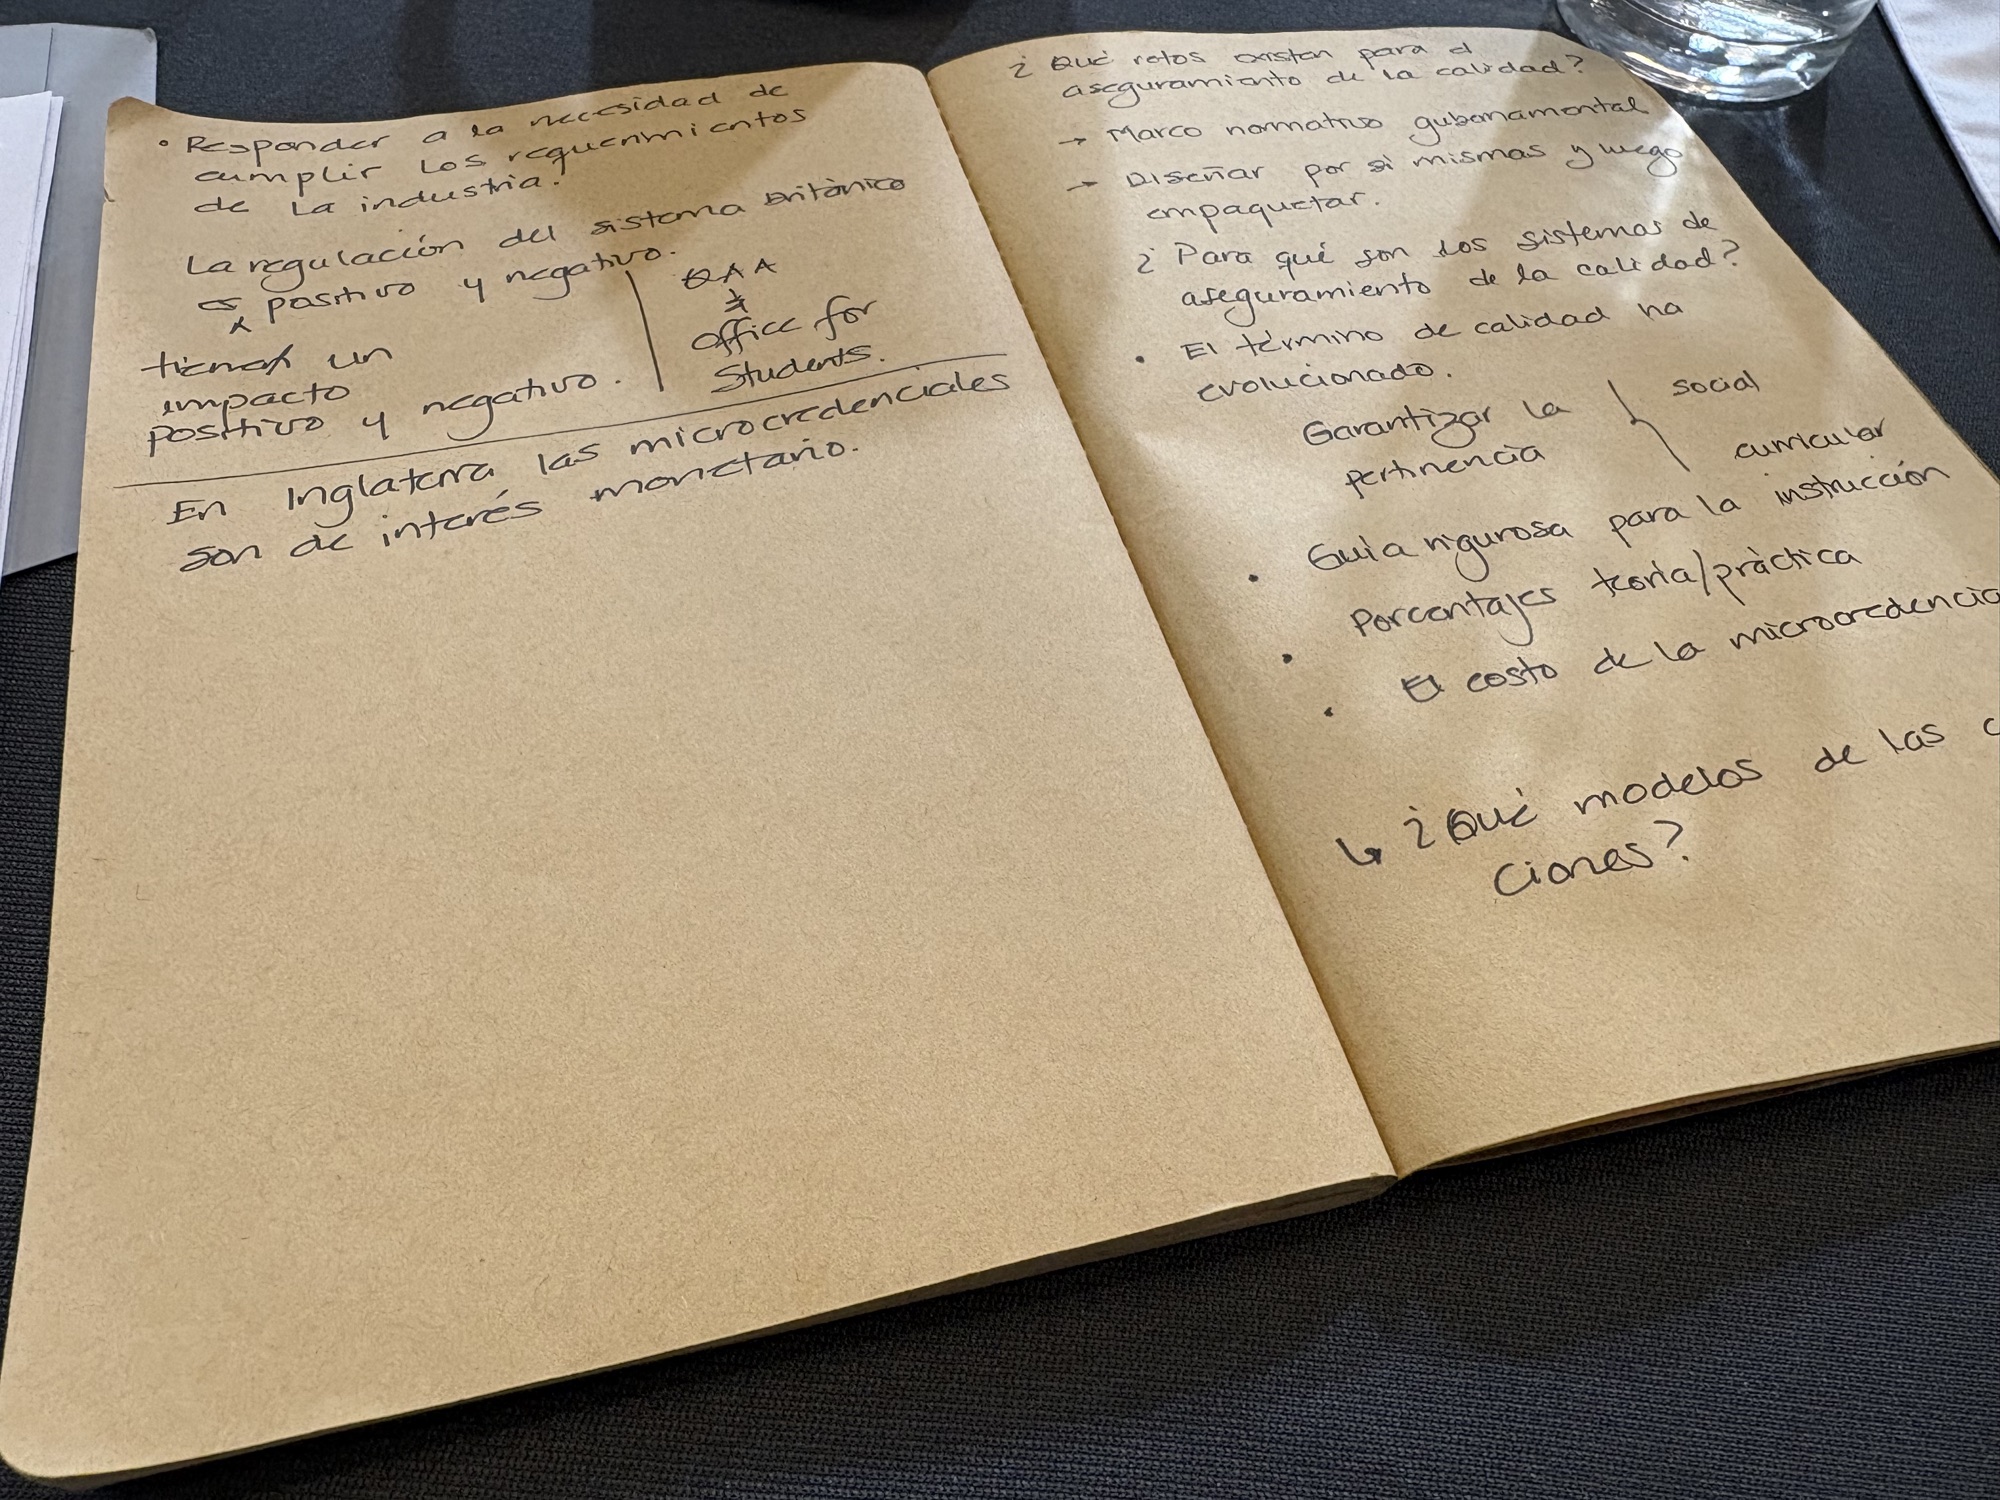 • Responder a la necesidad de
cumplir los requerimientos
de la industria.
La regulación del sistema Británico
es positivo y negativo.
tienen un
impacto
positivo y negativo.
QAA
Office for
Students.
En Inglaterra las microcredenciales
son de interés monetario.
¿Qué retos existen para el
aseguramiento de la calidad?
→ Marco normativo gubernamental
→ Diseñar por si mismas y luego
empaquetar.
¿Para qué son los sistemas de
aseguramiento de la calidad?
• El término de calidad ha
evolucionado.
Garantizar la
pertinencia
social
curricular
• Guia rigurosa para la instrucción
• Porcentajes teoría/práctica
• El costo de la microcredencia
↳ ¿Qué modelos de las c
ciones?